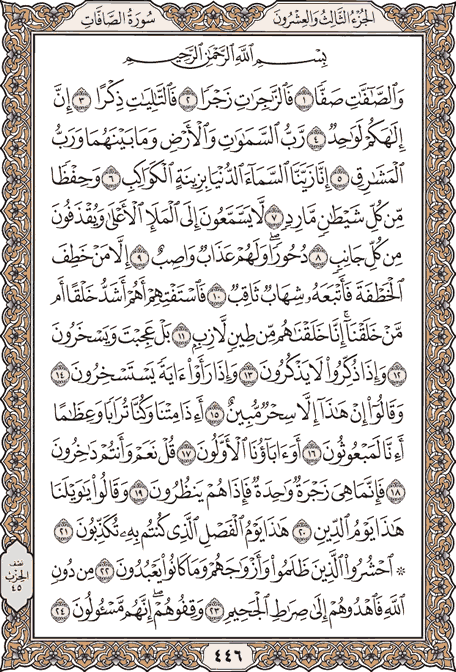 سُورَةُ الصَّافَّاتِ
الجُزْءُ الثَّالِثُ وَالعِشْرُونَ
بِسْمِ اللَّهِ الرَّحْمَٰنِ الرَّحِيمِ
وَالصَّٰٓفَّٰتِ صَفّٗا ١ فَالزَّٰجِرَٰتِ زَجۡرٗا ٢ فَالتَّٰلِيَٰتِ ذِكۡرًا ٣ إِنَّ
إِلَٰهَكُمۡ لَوَٰحِدٞ ٤ رَّبُّ السَّمَٰوَٰتِ وَالۡأَرۡضِ وَمَا بَيۡنَهُمَا وَرَبُّ
الۡمَشَٰرِقِ ٥ إِنَّا زَيَّنَّا السَّمَآءَ الدُّنۡيَا بِزِينَةٍ الۡكَوَاكِبِ ٦ وَحِفۡظٗا
مِّن كُلِّ شَيۡطَٰنٖ مَّارِدٖ ٧ لَّا يَسَّمَّعُونَ إِلَى الۡمَلَإِ الۡأَعۡلَىٰ وَيُقۡذَفُونَ
مِن كُلِّ جَانِبٖ ٨ دُحُورٗاۖ وَلَهُمۡ عَذَابٞ وَاصِبٌ ٩ إِلَّا مَنۡ خَطِفَ
الۡخَطۡفَةَ فَأَتۡبَعَهُۥ شِهَابٞ ثَاقِبٞ ١٠ فَاسۡتَفۡتِهِمۡ أَهُمۡ أَشَدُّ خَلۡقًا أَم
مَّنۡ خَلَقۡنَآۚ إِنَّا خَلَقۡنَٰهُم مِّن طِينٖ لَّازِبِۭ ١١ بَلۡ عَجِبۡتَ وَيَسۡخَرُونَ
١٢ وَإِذَا ذُكِّرُواْ لَا يَذۡكُرُونَ ١٣ وَإِذَا رَأَوۡاْ ءَايَةٗ يَسۡتَسۡخِرُونَ ١٤
وَقَالُوٓاْ إِنۡ هَٰذَآ إِلَّا سِحۡرٞ مُّبِينٌ ١٥ أَءِذَا مِتۡنَا وَكُنَّا تُرَابٗا وَعِظَٰمًا
أَءِنَّا لَمَبۡعُوثُونَ ١٦ أَوَءَابَآؤُنَا الۡأَوَّلُونَ ١٧ قُلۡ نَعَمۡ وَأَنتُمۡ دَٰخِرُونَ
١٨ فَإِنَّمَا هِيَ زَجۡرَةٞ وَٰحِدَةٞ فَإِذَا هُمۡ يَنظُرُونَ ١٩ وَقَالُواْ يَٰوَيۡلَنَا
هَٰذَا يَوۡمُ الدِّينِ ٢٠ هَٰذَا يَوۡمُ الۡفَصۡلِ الَّذِي كُنتُم بِهِۦ تُكَذِّبُونَ ٢١
۞ احۡشُرُواْ الَّذِينَ ظَلَمُواْ وَأَزۡوَٰجَهُمۡ وَمَا كَانُواْ يَعۡبُدُونَ ٢٢ مِن دُونِ
اللَّهِ فَاهۡدُوهُمۡ إِلَىٰ صِرَٰطِ الۡجَحِيمِ ٢٣ وَقِفُوهُمۡۖ إِنَّهُم مَّسۡـُٔولُونَ ٢٤
نصف
الحزب
٤٥
٤٤٦